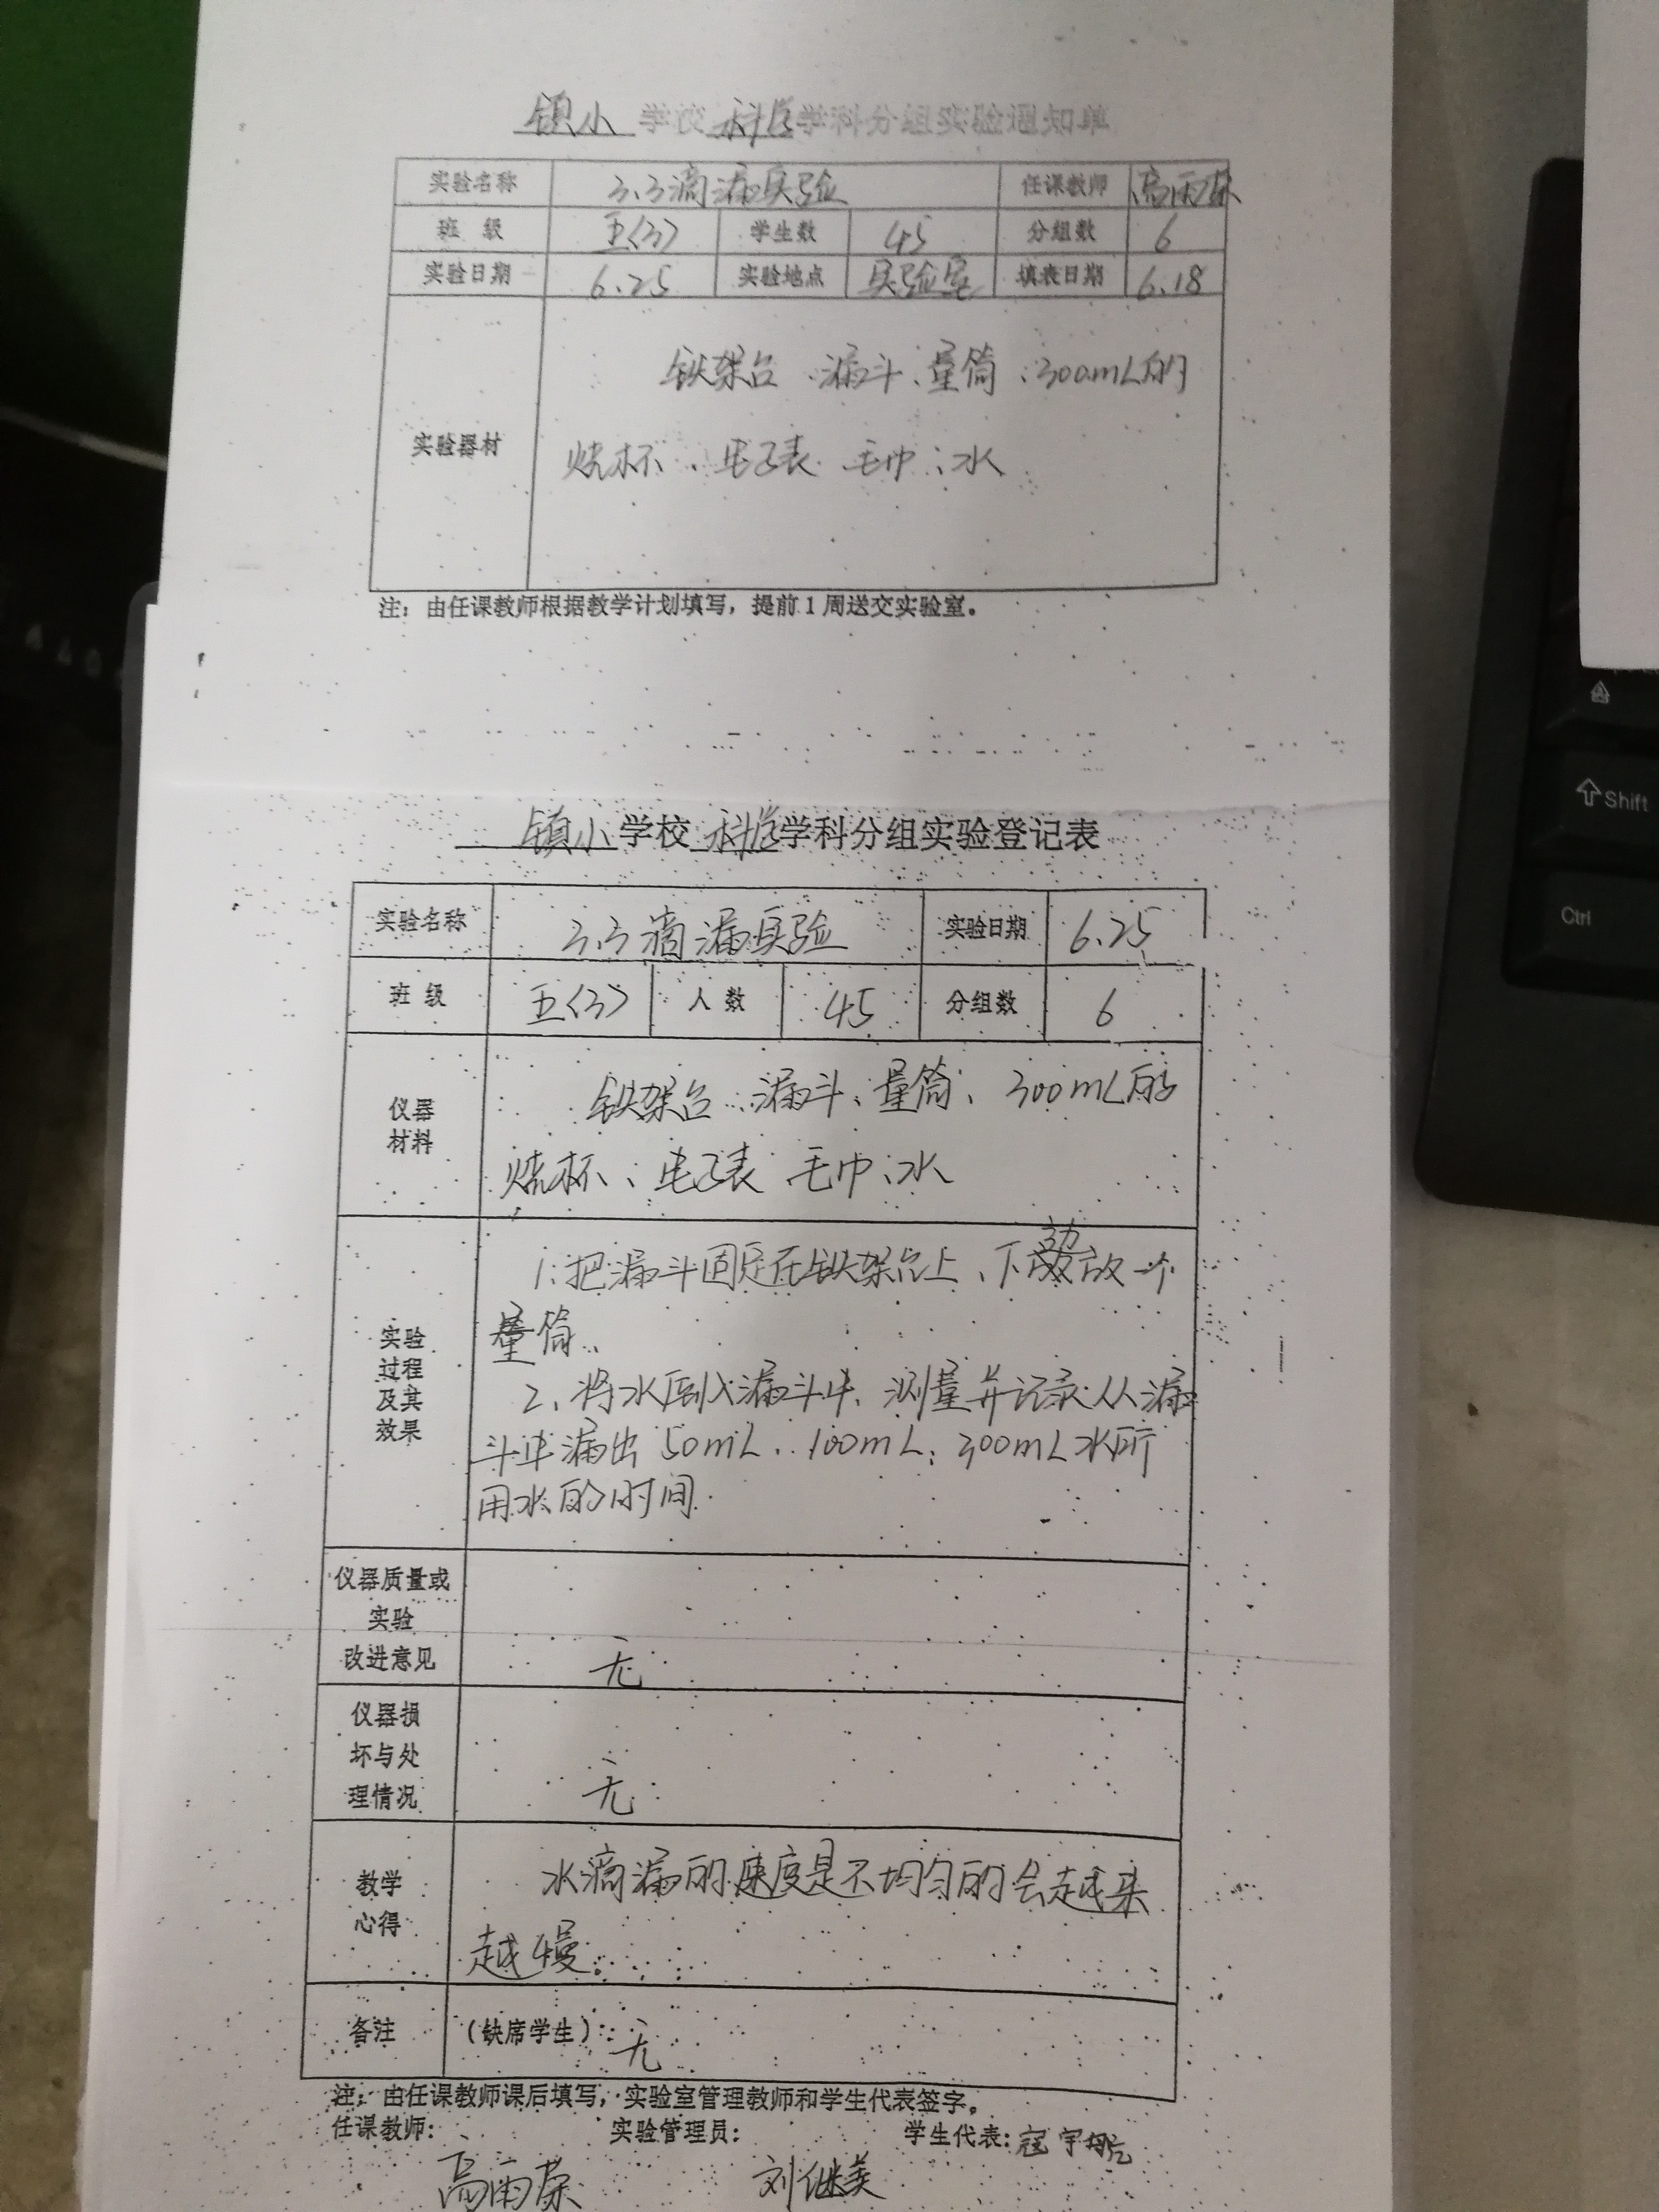 镇小 学校 科学学科分组实验通知单
实验名称 3.3滴漏实验 任课教师 高雨荣
班 级 五(3) 学生数 45 分组数 6
实验日期 6.25 实验地点 实验室 填表日期 6.18
铁架台、漏斗、量筒、300mL的
实验器材
烧杯、电子表 毛巾、水
注：由任课教师根据教学计划填写，提前1周送交实验室。
镇小学校 科学学科分组实验登记表
实验名称 3.3滴漏实验 实验日期 6.25
班 级 五(3) 人 数 45 分组数 6
仪器
材料
铁架台、漏斗、量筒、300mL的
烧杯、电子表 毛巾、水
实验
过程
及其
效果
1.把漏斗固定在铁架台上、下放一个
量筒、
2、将水倒入漏斗中、测量并记录从漏
斗中漏出50mL、100mL、300mL水所
用水的时间.
仪器质量或
实验
改进意见
无
仪器损
坏与处
理情况
无
教学
心得
水滴漏的速度是不均匀的会越来
越慢.
备注 (缺席学生): 无
注：由任课教师课后填写，实验室管理教师和学生代表签字。
任课教师: 实验管理员: 学生代表: 寇宇航
高雨荣 刘继美
Shift
Ctrl